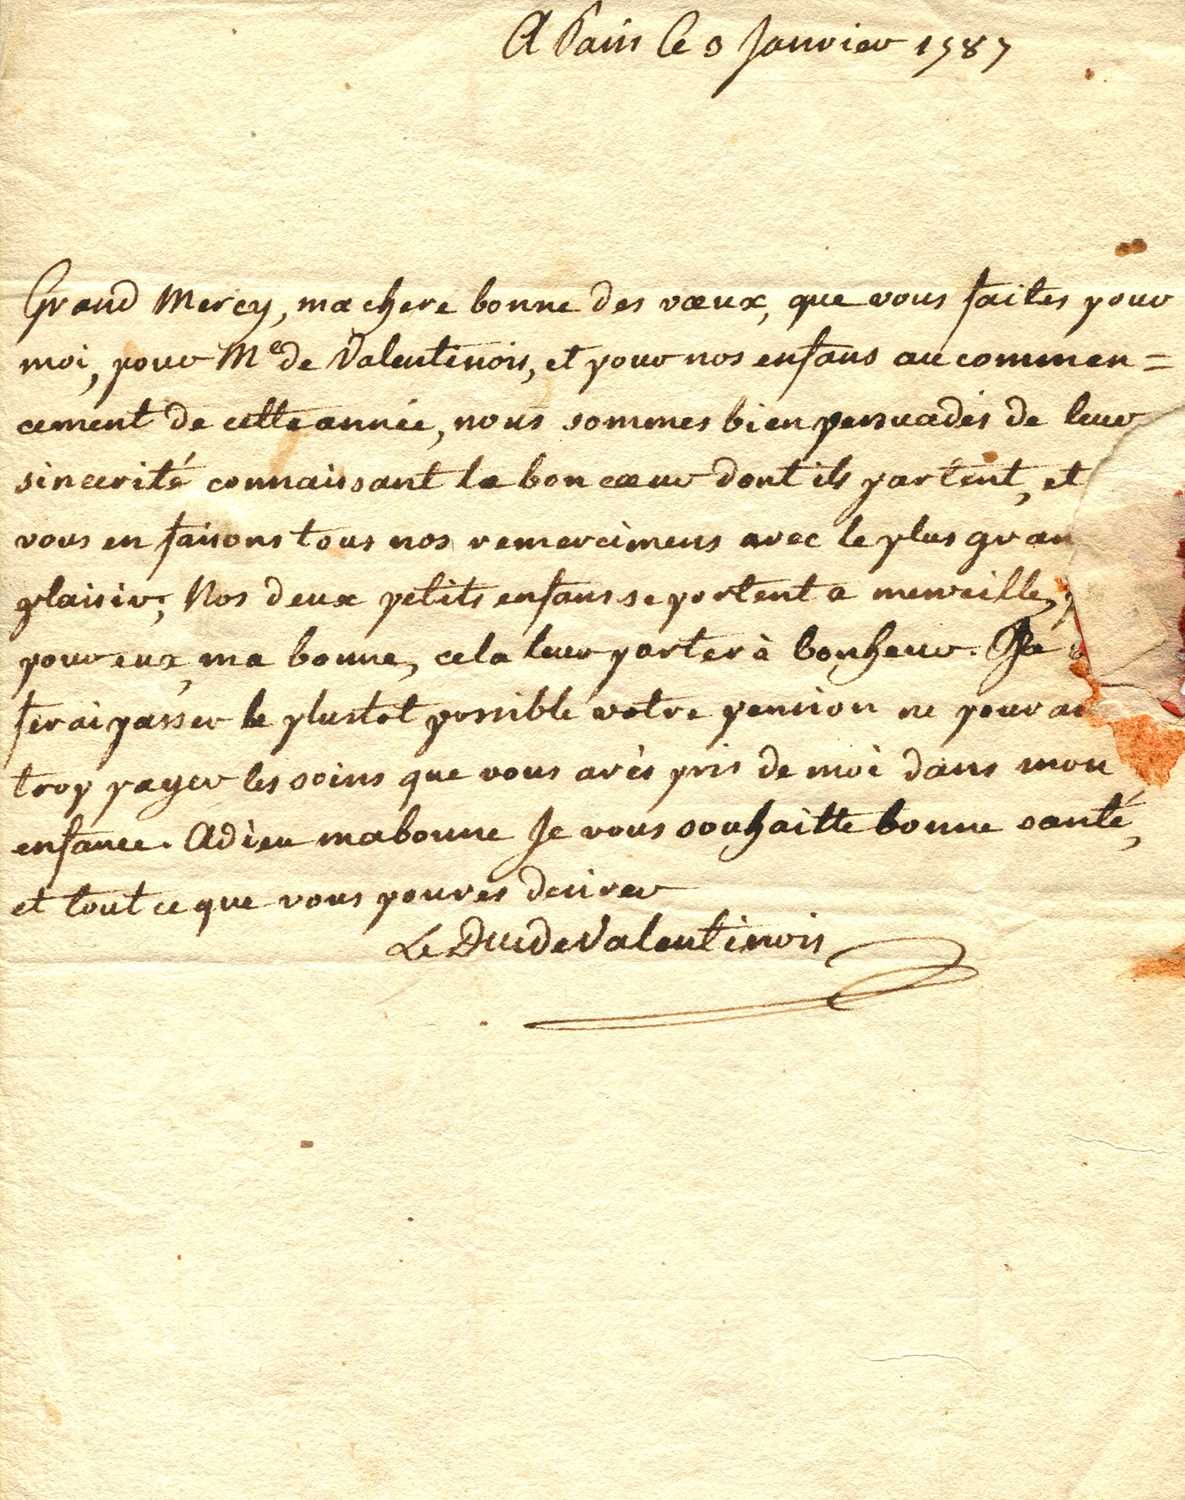 A Paris le 3 Janvier 1787
Grand Mercy, ma chere bonne des vœux, que vous faites pour
moi, pour Me de Valentinois, et pour nos enfans au commen=
cement de cette année, nous sommes bien persuadés de leur
sincerité connaissant le bon cœur dont ils partent, et
vous en faisons tous nos remercimens avec le plus gran
plaisir; Nos deux petits enfans se portent a merveille,
pour eux, ma bonne, cela leur portera bonheur. Je
ferai passer le plustot possible votre pension ne pouvan
trop payer les soins que vous avès pris de moi dans mon
enfance. Adieu ma bonne Je vous souhaitte bonne santé,
et tout ce que vous pouvés desirer
Le Duc de Valentinois